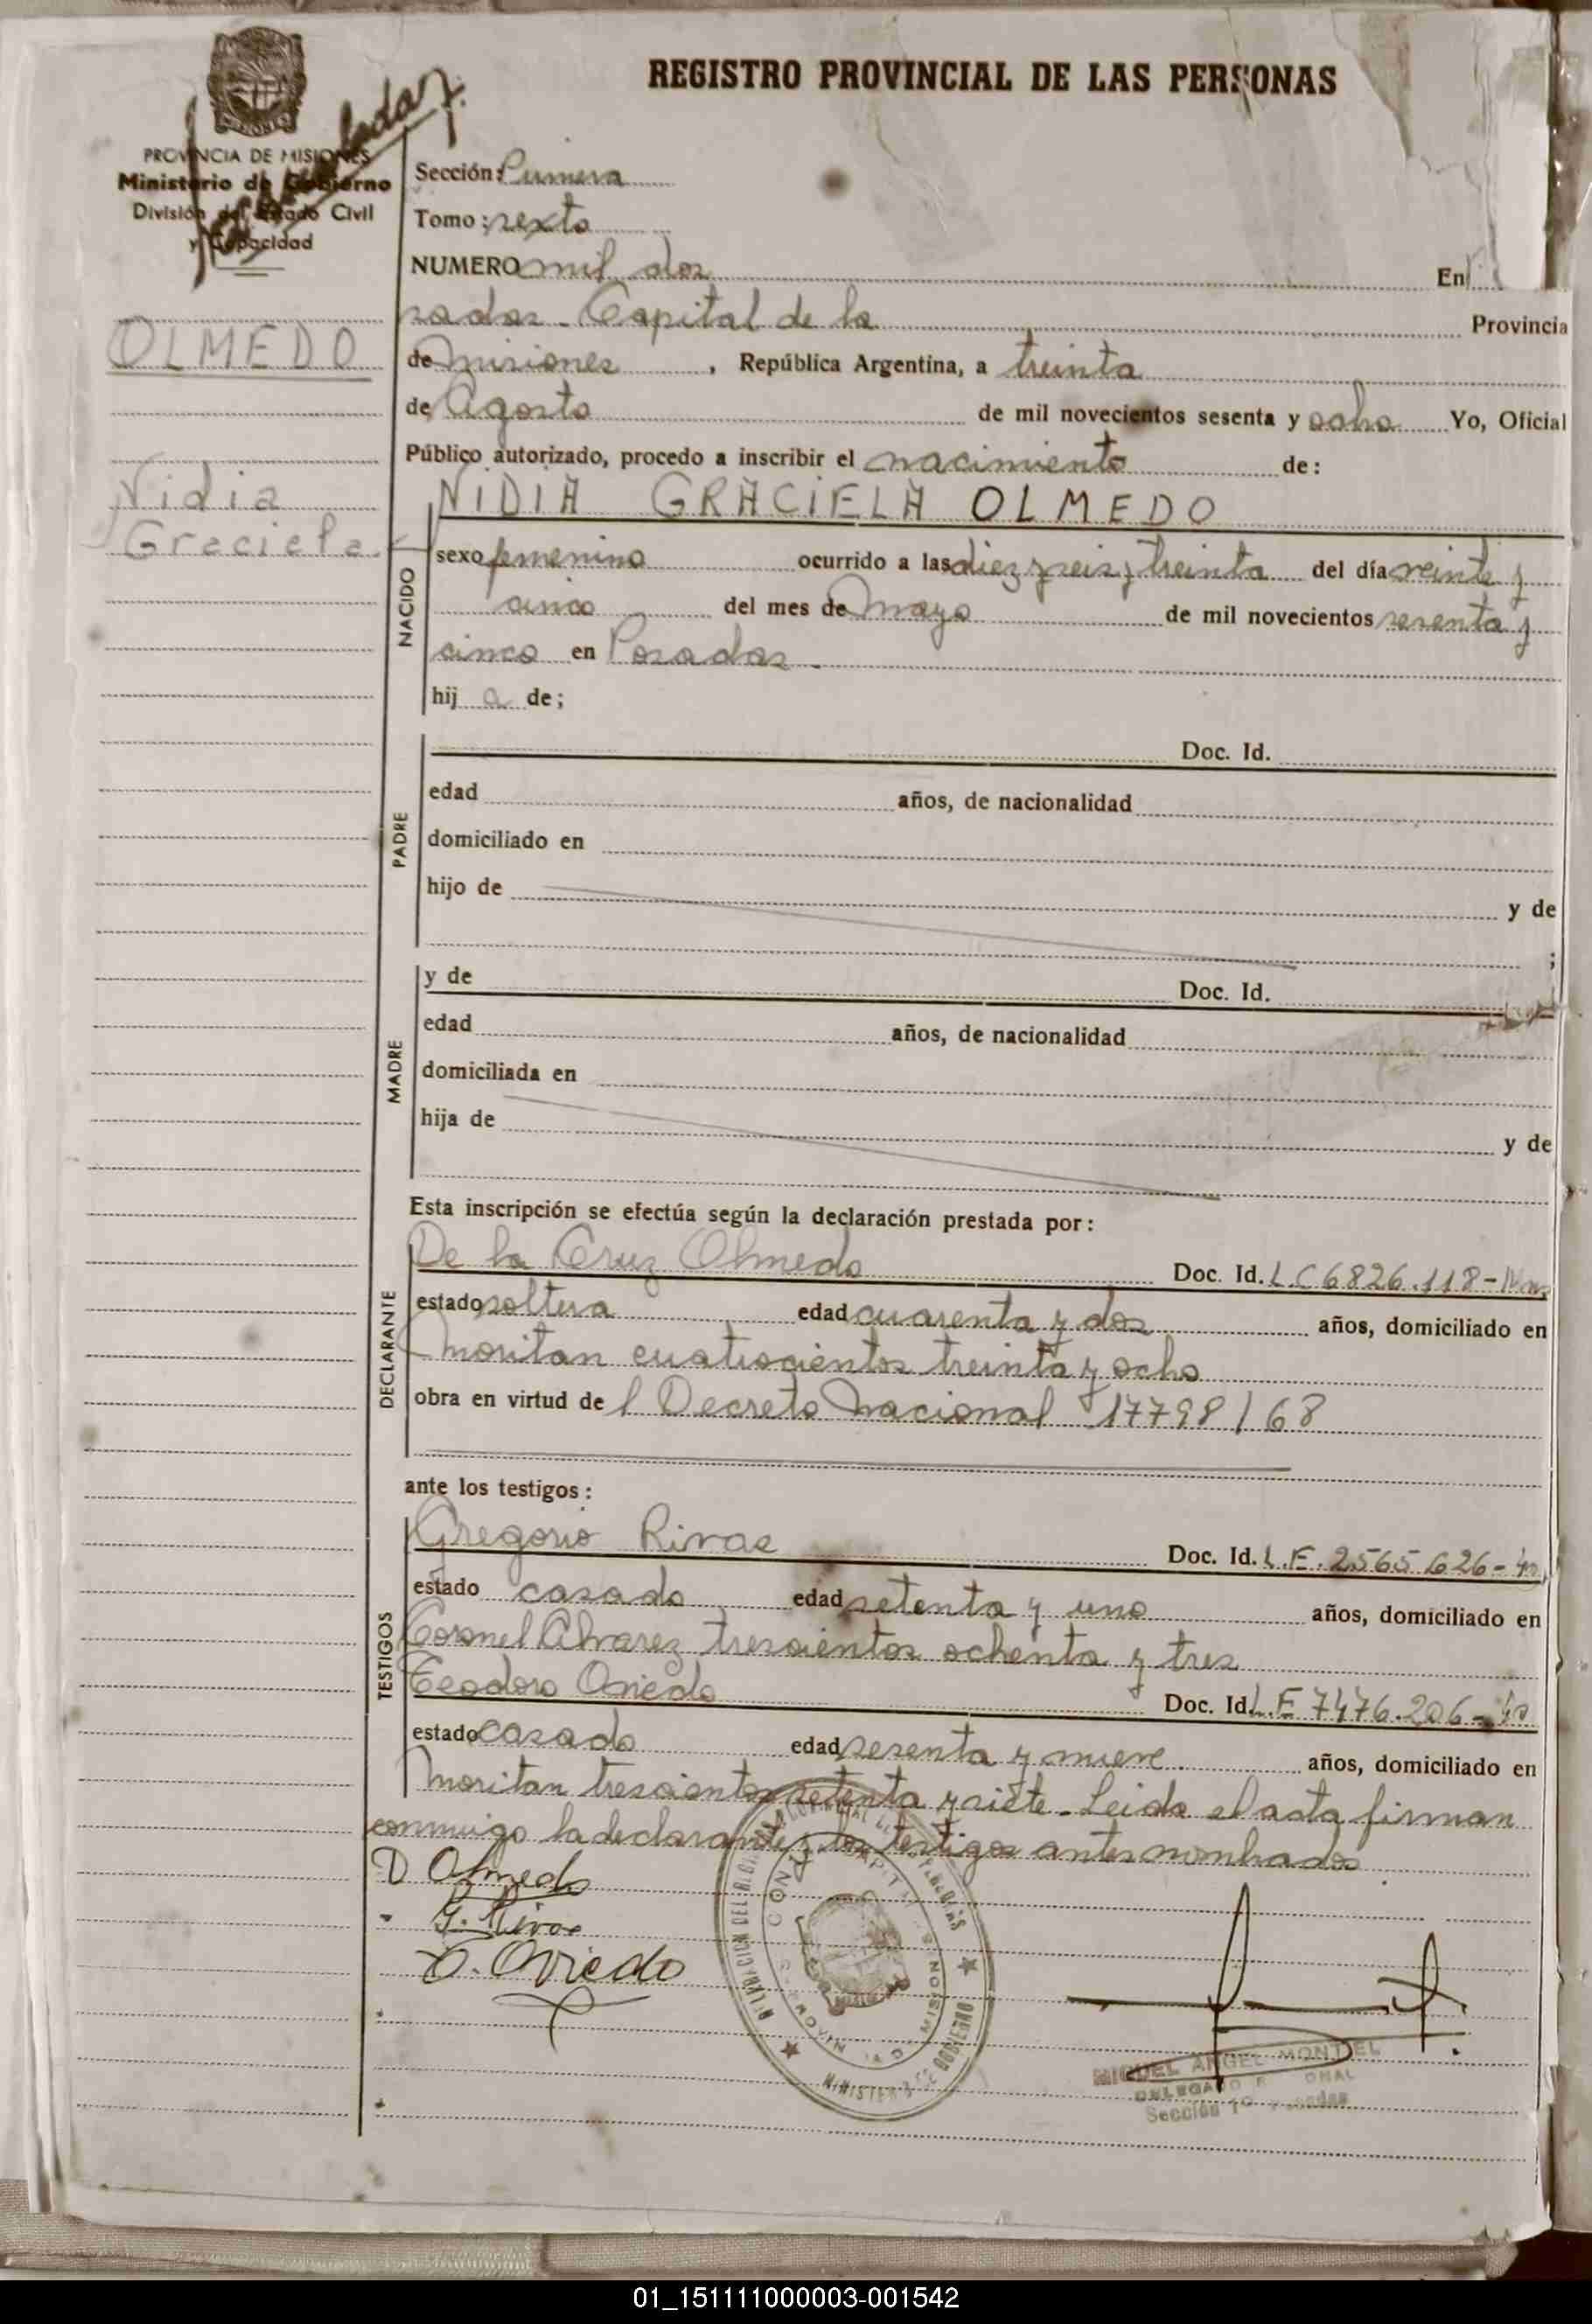 REGISTRO PROVINCIAL DE LAS PERSONAS
PROVINCIA DE MISIONES
Ministerio de Gobierno
División del Estado Civil
y Capacidad
Sección: Primera
Tomo: sexto
NUMERO mil dos En
sadas - Capital de la Provincia
OLMEDO
de Misiones, República Argentina, a treinta
de Agosto de mil novecientos sesenta y ocho Yo, Oficial
Público autorizado, procedo a inscribir el nacimiento de:
Nidia
Graciela
NIDIA GRACIELA OLMEDO
NACIDO
sexo femenino ocurrido a las diez y seis y treinta del día veinte y
cinco del mes de Mayo de mil novecientos sesenta y
cinco en Posadas -
hij a de;
PADRE
Doc. Id.
edad años, de nacionalidad
domiciliado en
hijo de y de
;
MADRE
y de Doc. Id.
edad años, de nacionalidad
domiciliada en
hija de y de
Esta inscripción se efectúa según la declaración prestada por:
DECLARANTE
De la Cruz Olmedo Doc. Id. L C 6826.118-
estado soltera edad cuarenta y dos años, domiciliado en
Moritan cuatrocientos treinta y ocho
obra en virtud de l Decreto Nacional 17798/68
ante los testigos:
TESTIGOS
Gregorio Rivas Doc. Id. L.E. 2565626-
estado casado edad setenta y uno años, domiciliado en
Coronel Alvarez trescientos ochenta y tres
Teodoro Oviedo Doc. Id. L.E 7476.206-
estado casado edad sesenta y nueve años, domiciliado en
Moritan trescientos setenta y siete - Leida el acta firman
conmigo la declarante y los testigos antes nombrados
D Olmedo
G. Rivas
T. Oviedo
MINISTERIO DE GOBIERNO
MIGUEL ANGEL MONTIEL
DELEGADO
Sección 1º Posadas
01_151111000003-001542